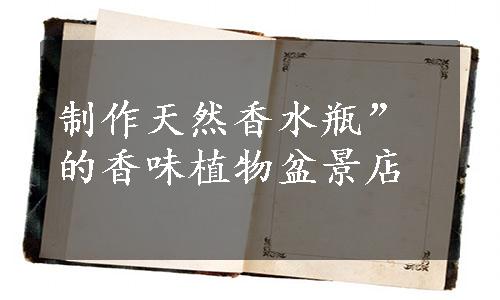 制作天然香水瓶”
的香味植物盆景店